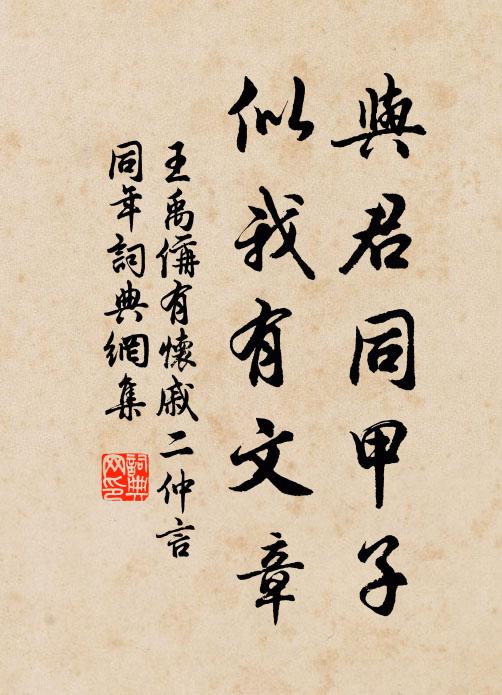 與君同甲子
似我有文章
王禹偁有懷戚二仲言
同年詞典網集
詞典
网印